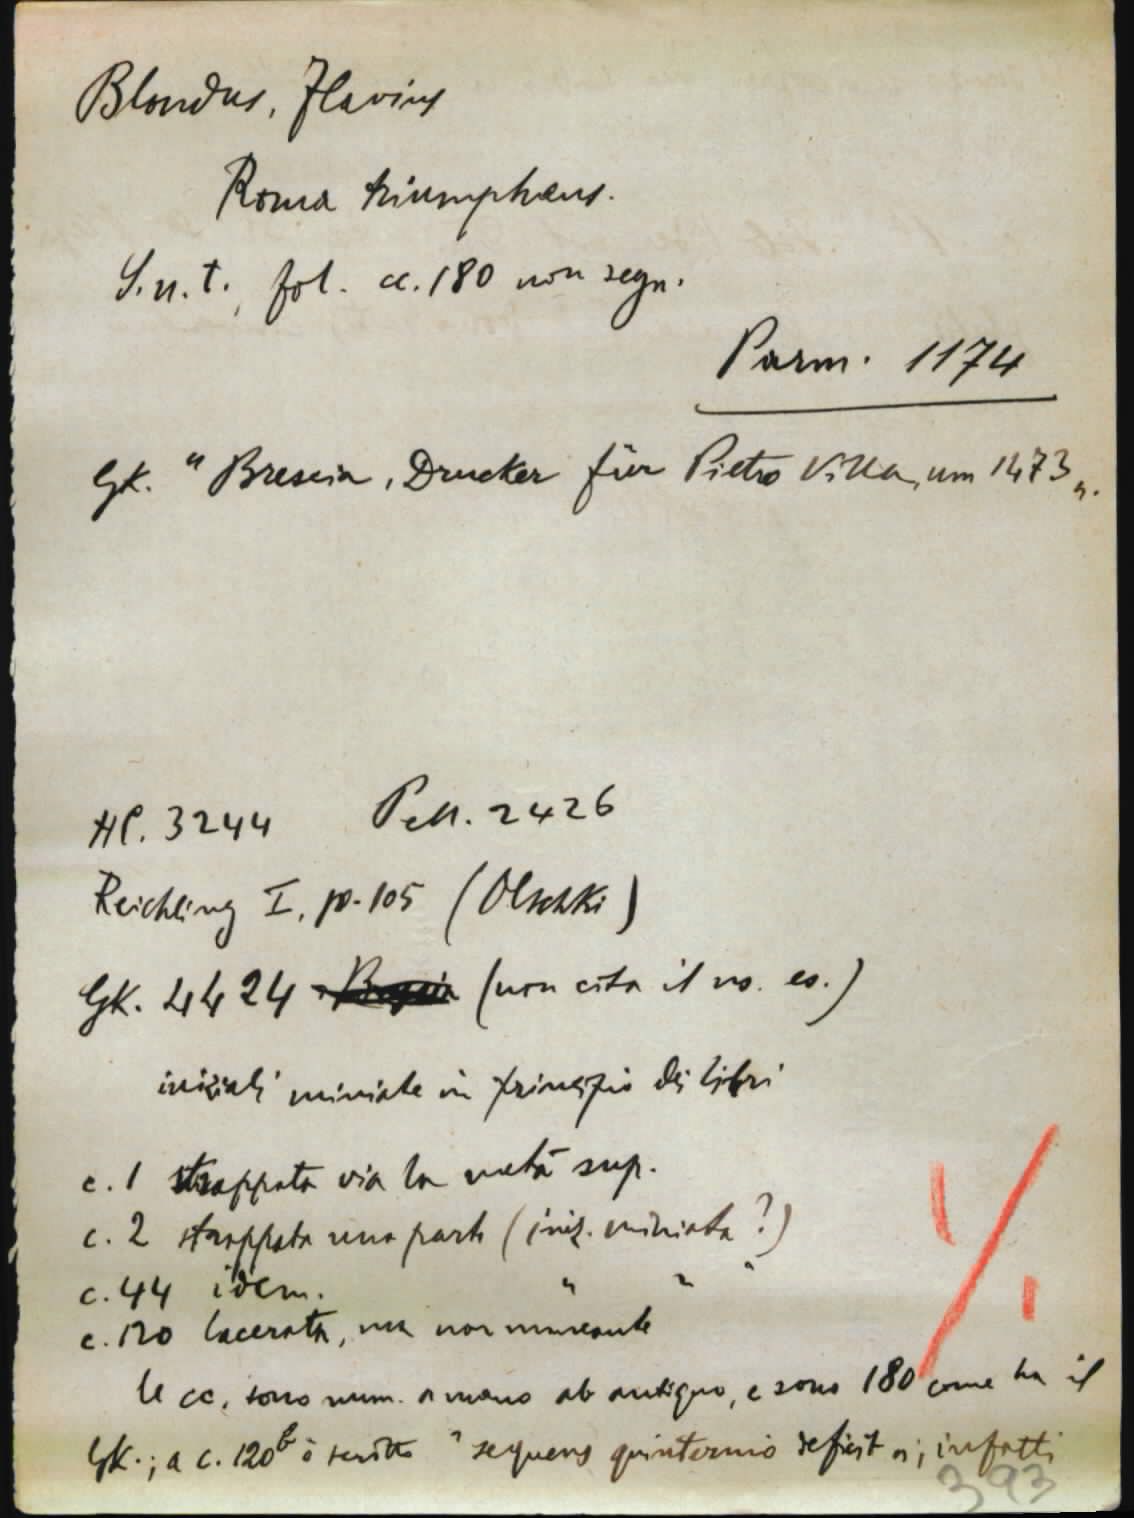 Blondus, Flavius
Roma triumphans.
S.n.t., fol. cc. 180 non segn.
Parm. 1174
GK. "Brescia, Drucker für Pietro Villa, um 1473".
HC. 3244 Pell. 2426
Reichling I, p. 105 (Olschki)
GK. 4424 (non cita il ns. es.)
iniziali miniate in principio dei libri
c. 1 strappata via la metà sup.
c. 2 strappata una parte (iniz. miniata?)
c. 44 idem. " " "
c. 120 lacerata, ma non mancante
le cc. sono num. a mano ab antiquo, e sono 180 come ha il
GK.; a c. 120b è scritto "sequens quinternio deficit"; infatti
393